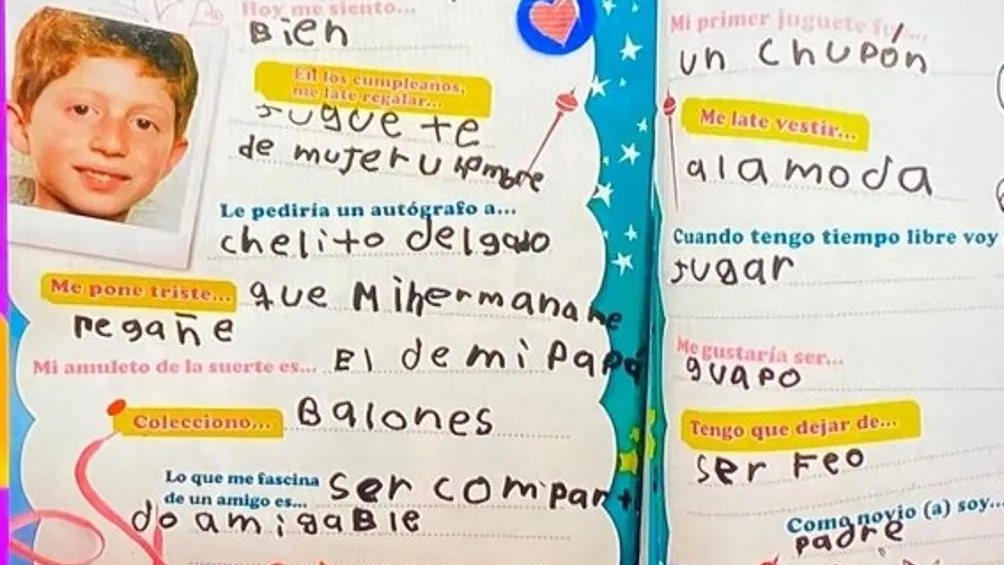 Hoy me siento...
Bien
En los cumpleaños,
me late regalar...
Juguete
de mujer u hembre
Le pediría un autógrafo a...
chelito delgado
Me pone triste...
que Mi hermana me
regañe
Mi amuleto de la suerte es...
El de mi Papá
Colecciono...
Balones
Lo que me fascina
de un amigo es...
ser compart
do amigable
Mi primer juguete fue...
un chupón
Me late vestir...
a la moda
Cuando tengo tiempo libre voy
jugar
Me gustaría ser...
guapo
Tengo que dejar de...
ser Feo
Como novio (a) soy...
padre